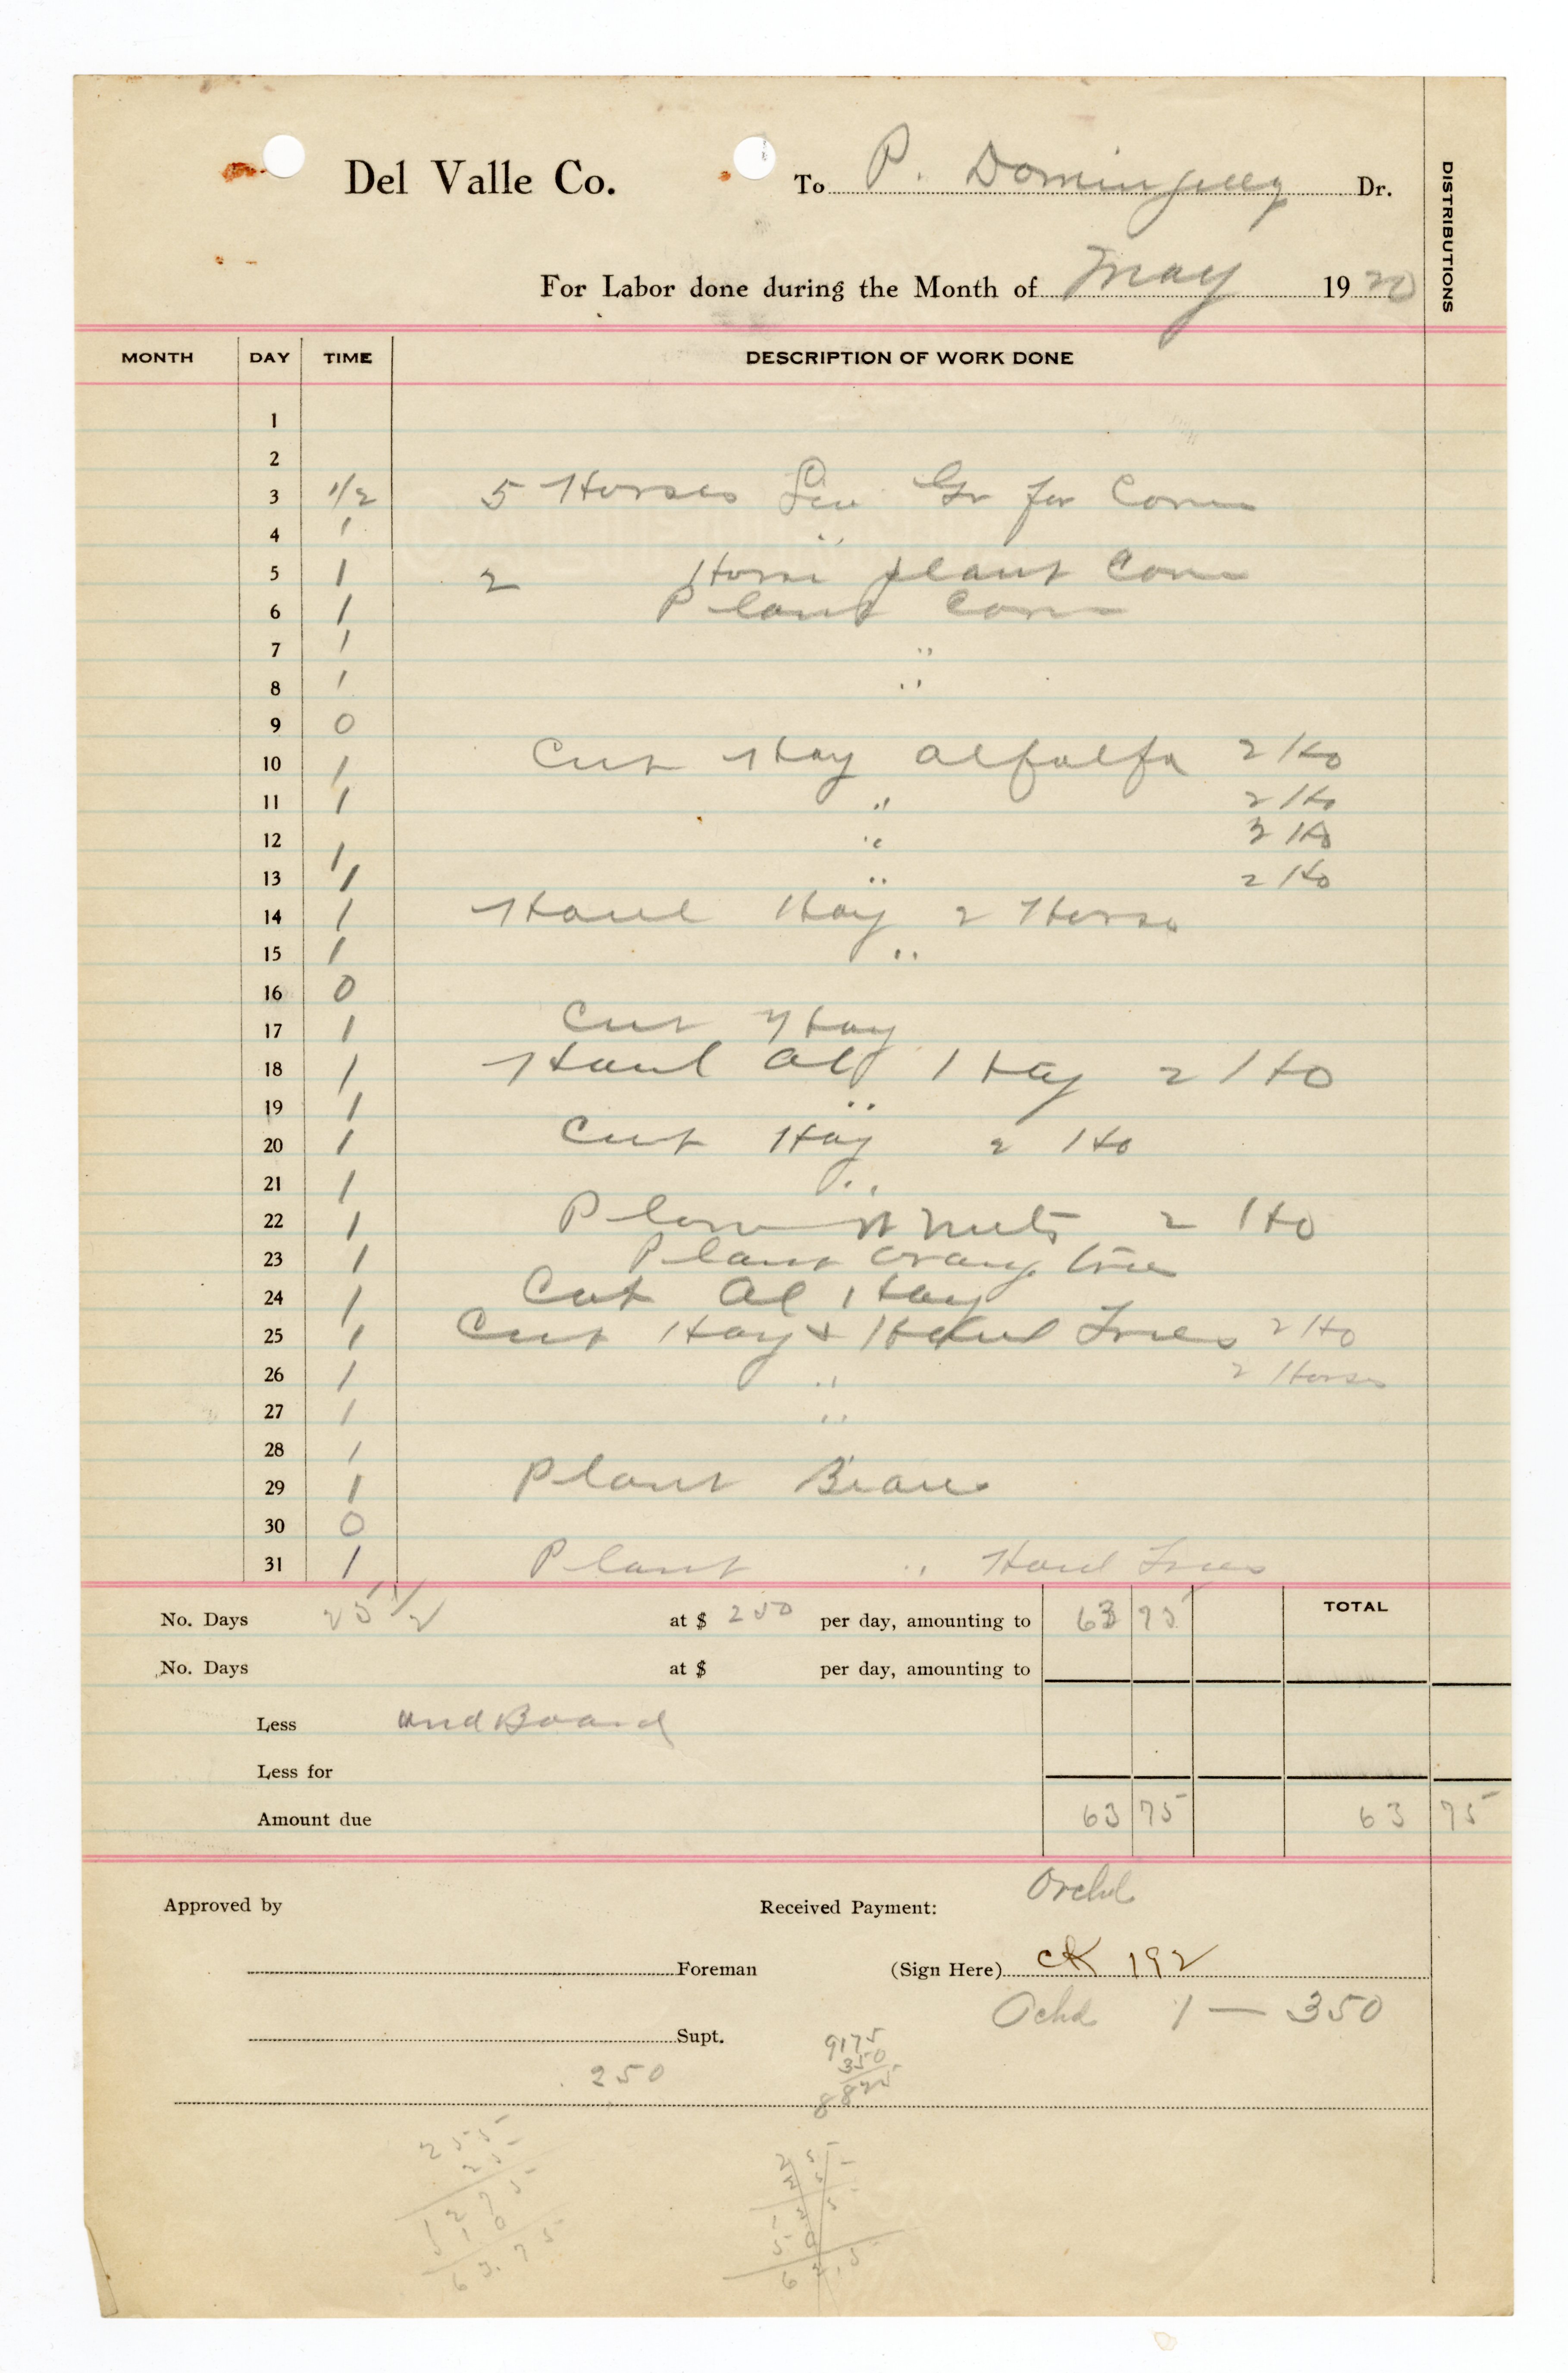 Del Valle Co. To P. Dominguez Dr.
DISTRIBUTIONS
For Labor done during the Month of May 1920
MONTH DAY TIME DESCRIPTION OF WORK DONE
1
2
3 1/2 5 Horses Gr for Corn
4 1 "
5 1 2 Horse plant Corn
6 1 Plant Corn
7 1 "
8 1 "
9 0
10 1 Cut Hay alfalfa 2 Ho
11 1 " 2 Ho
12 1 " 2 Ho
13 1 " 2 Ho
14 1 Haul Hay 2 Horse
15 1 "
16 0
17 1 Cut Hay
18 1 Haul Alf Hay 2 Ho
19 1 "
20 1 Cut Hay 2 Ho
21 1 "
22 1 Plow W Nuts 2 Ho
23 1 Plant orang tree
24 1 Cut Al Hay
25 1 Cut Hay & Haul Trees 2 Ho
26 1 " 2 Horses
27 1 "
28 1
29 1 Plant Beans
30 0
31 1 Plant " Haul Trees
No. Days 25 1/2 at $ 250 per day, amounting to 63 75 TOTAL
No. Days at $ per day, amounting to
Less and Board
Less for
Amount due 63 75 63 75
Approved by Received Payment: Orchd
Foreman (Sign Here) CK 192
Ochd 1 — 350
Supt.
9175
350
8825
250
255
25
1275
510
63.75